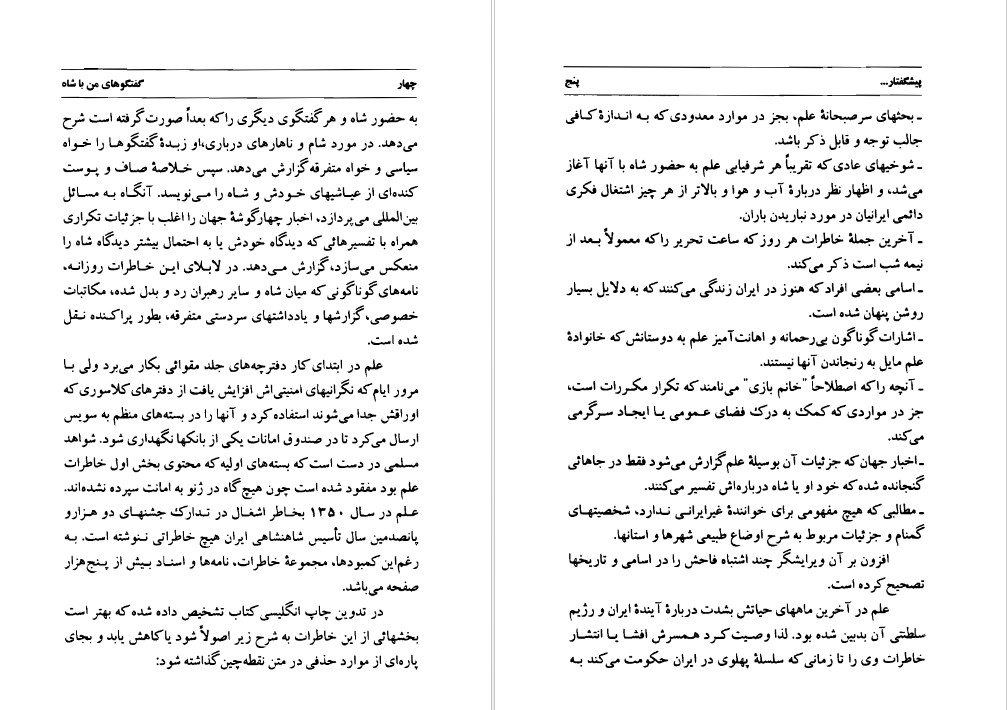 چهار گفتگوهای من با شاه
به حضور شاه و هر گفتگوی دیگری را که بعداً صورت گرفته است شرح
می‌دهد. در مورد شام و ناهارهای درباری، او زبدهٔ گفتگوها را خواه
سیاسی و خواه متفرقه گزارش می‌دهد. سپس خلاصهٔ صاف و پوست
کنده‌ای از عیاشیهای خودش و شاه را می‌نویسد. آنگاه به مسائل
بین‌المللی می‌پردازد، اخبار چهارگوشهٔ جهان را اغلب با جزئیات تکراری
همراه با تفسیرهائی که دیدگاه خودش یا به احتمال بیشتر دیدگاه شاه را
منعکس می‌سازد، گزارش می‌دهد. در لابلای این خاطرات روزانه،
نامه‌های گوناگونی که میان شاه و سایر رهبران رد و بدل شده، مکاتبات
خصوصی، گزارشها و یادداشتهای سردستی متفرقه، بطور پراکنده نقل
شده است.
علم در ابتدای کار دفترچه‌های جلد مقوائی بکار می‌برد ولی با
مرور ایام که نگرانیهای امنیتی‌اش افزایش یافت از دفترهای کلاسوری که
اوراقش جدا می‌شوند استفاده کرد و آنها را در بسته‌های منظم به سویس
ارسال می‌کرد تا در صندوق امانات یکی از بانکها نگهداری شود. شواهد
مسلمی در دست است که بسته‌های اولیه که محتوی بخش اول خاطرات
علم بود مفقود شده است چون هیچ‌گاه در ژنو به امانت سپرده نشده‌اند.
علم در سال ۱۳۵۰ بخاطر اشغال در تدارک جشنهای دو هزار و
پانصدمین سال تأسیس شاهنشاهی ایران هیچ خاطراتی ننوشته است. به
رغم این کمبودها، مجموعهٔ خاطرات، نامه‌ها و اسناد بیش از پنج‌هزار
صفحه می‌باشد.
در تدوین چاپ انگلیسی کتاب تشخیص داده شده که بهتر است
بخشهائی از این خاطرات به شرح زیر اصولاً شود یاکاهش یابد و بجای
پاره‌ای از موارد حذفی در متن نقطه‌چین گذاشته شود:
پیشگفتار... پنج
ـ بحثهای سرصبحانهٔ علم، بجز در موارد معدودی که به اندازهٔ کافی
جالب توجه و قابل ذکر باشد.
ـ شوخیهای عادی که تقریباً هر شرفیابی علم به حضور شاه با آنها آغاز
می‌شد، و اظهار نظر دربارهٔ آب و هوا و بالاتر از هر چیز اشتغال فکری
دائمی ایرانیان در مورد نباریدن باران.
ـ آخرین جملهٔ خاطرات هر روز که ساعت تحریر را که معمولاً بعد از
نیمه شب است ذکر می‌کند.
ـ اسامی بعضی افراد که هنوز در ایران زندگی می‌کنند که به دلایل بسیار
روشن پنهان شده است.
ـ اشارات گوناگون بی‌رحمانه و اهانت‌آمیز علم به دوستانش که خانوادهٔ
علم مایل به رنجاندن آنها نیستند.
ـ آنچه را که اصطلاحاً "خانم بازی" می‌نامند که تکرار مکررات است،
جز در مواردی که کمک به درک فضای عمومی یا ایجاد سرگرمی
می‌کند.
ـ اخبار جهان که جزئیات آن بوسیلهٔ علم گزارش می‌شود فقط در جاهائی
گنجانده شده که خود او یا شاه درباره‌اش تفسیر می‌کنند.
ـ مطالبی که هیچ مفهومی برای خوانندهٔ غیرایرانی ندارد، شخصیتهای
گمنام و جزئیات مربوط به شرح اوضاع طبیعی شهرها و استانها.
افزون بر آن ویرایشگر چند اشتباه فاحش را در اسامی و تاریخها
تصحیح کرده است.
علم در آخرین ماههای حیاتش بشدت دربارهٔ آیندهٔ ایران و رژیم
سلطنتی آن بدبین شده بود. لذا وصیت کرد همسرش افشا یا انتشار
خاطرات وی را تا زمانی که سلسلهٔ پهلوی در ایران حکومت می‌کند به